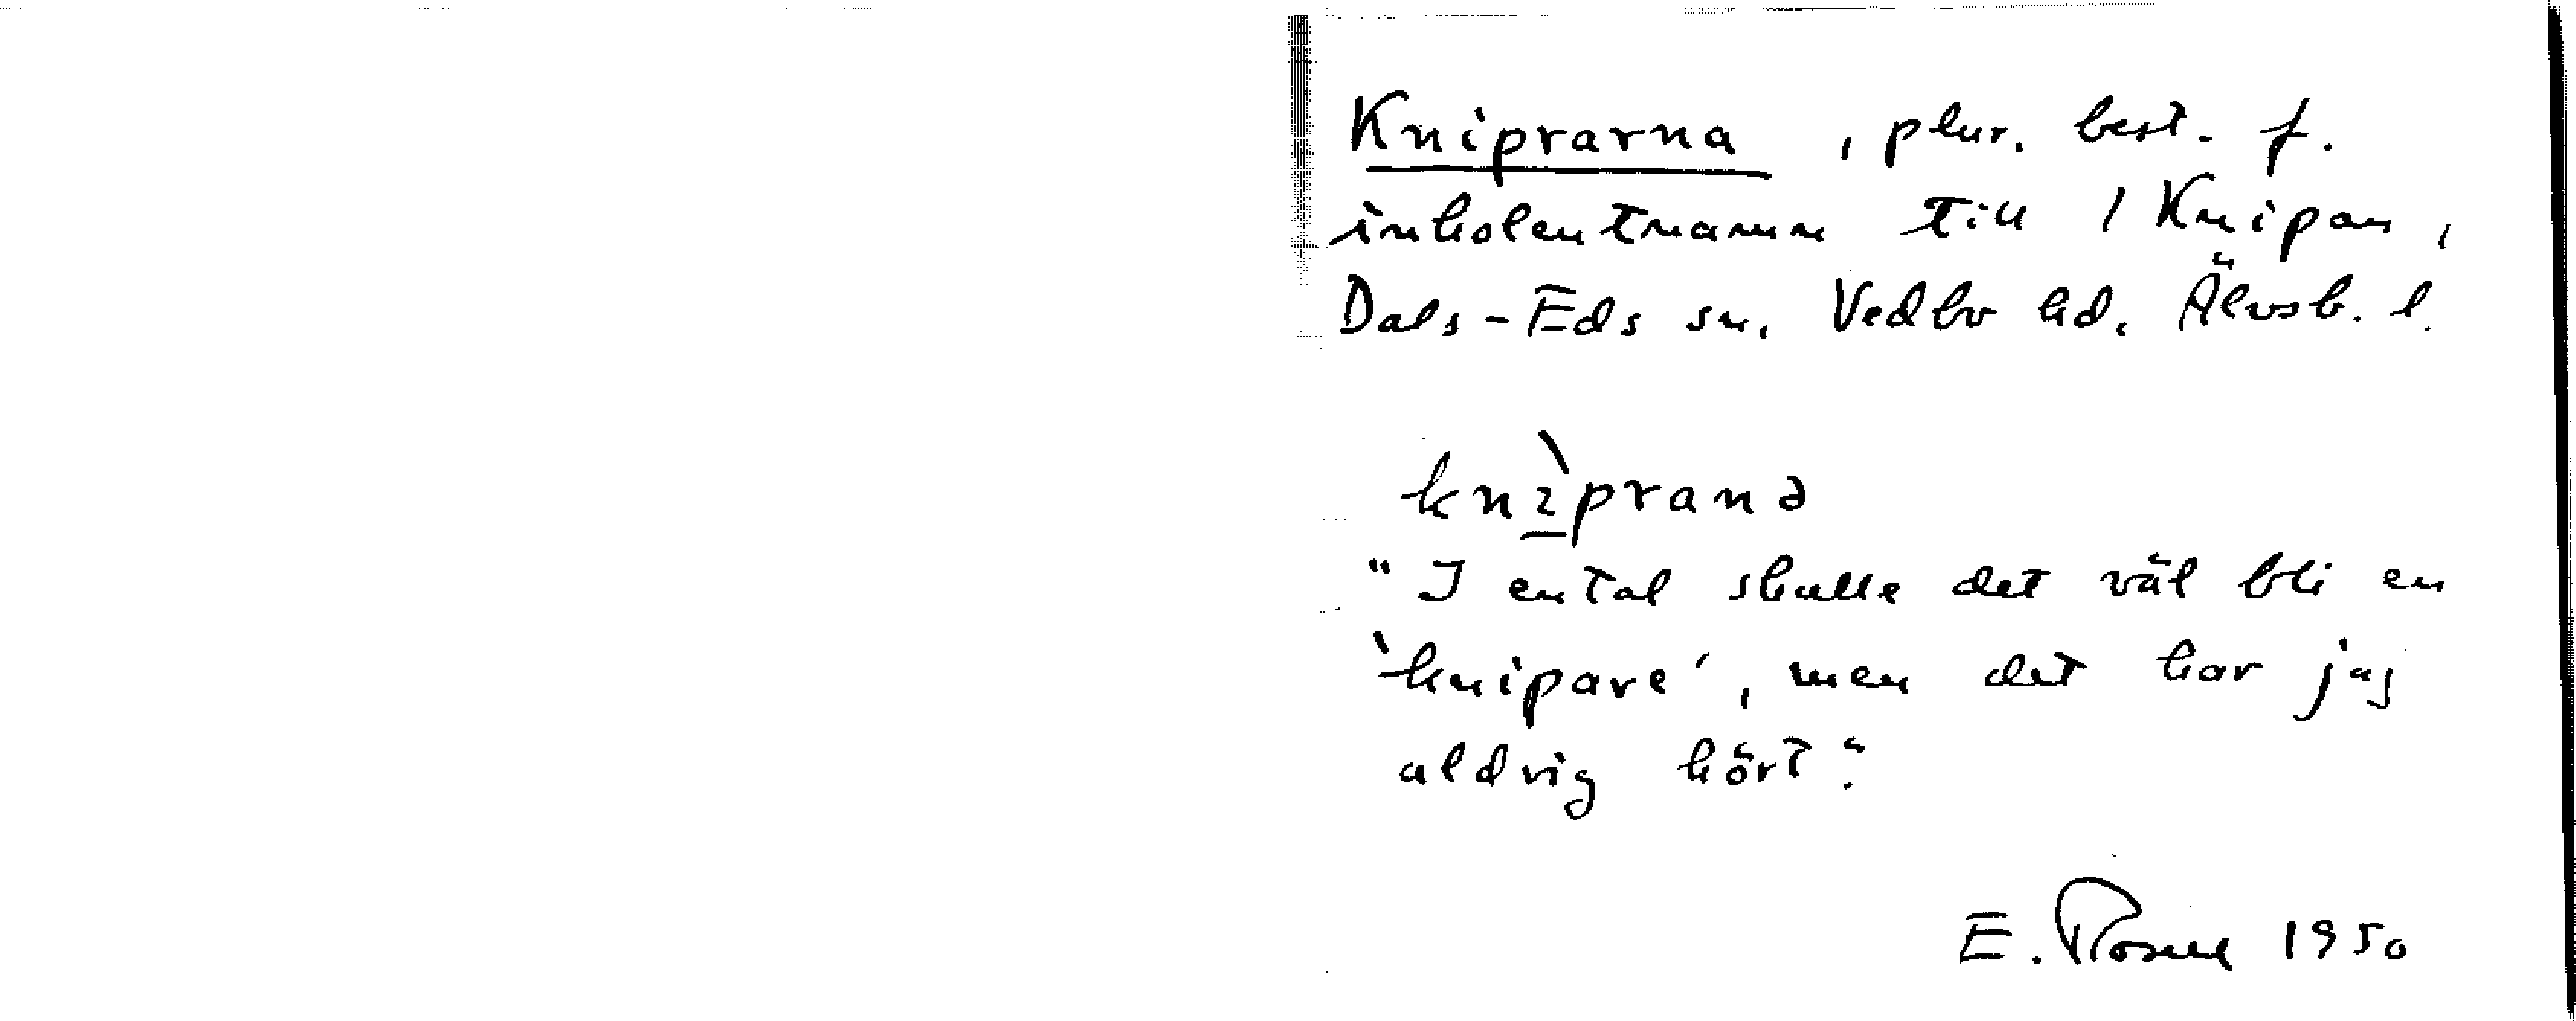 Kniprarna, plur. best. f.
inbolentnamn till / Knipan,
Dals-Eds sn, Vedbo hd, Älvsb. l.
knìpranə
"I ental skulle det väl bli en
`knipare', men det har jag
aldrig hört."
E. 1950